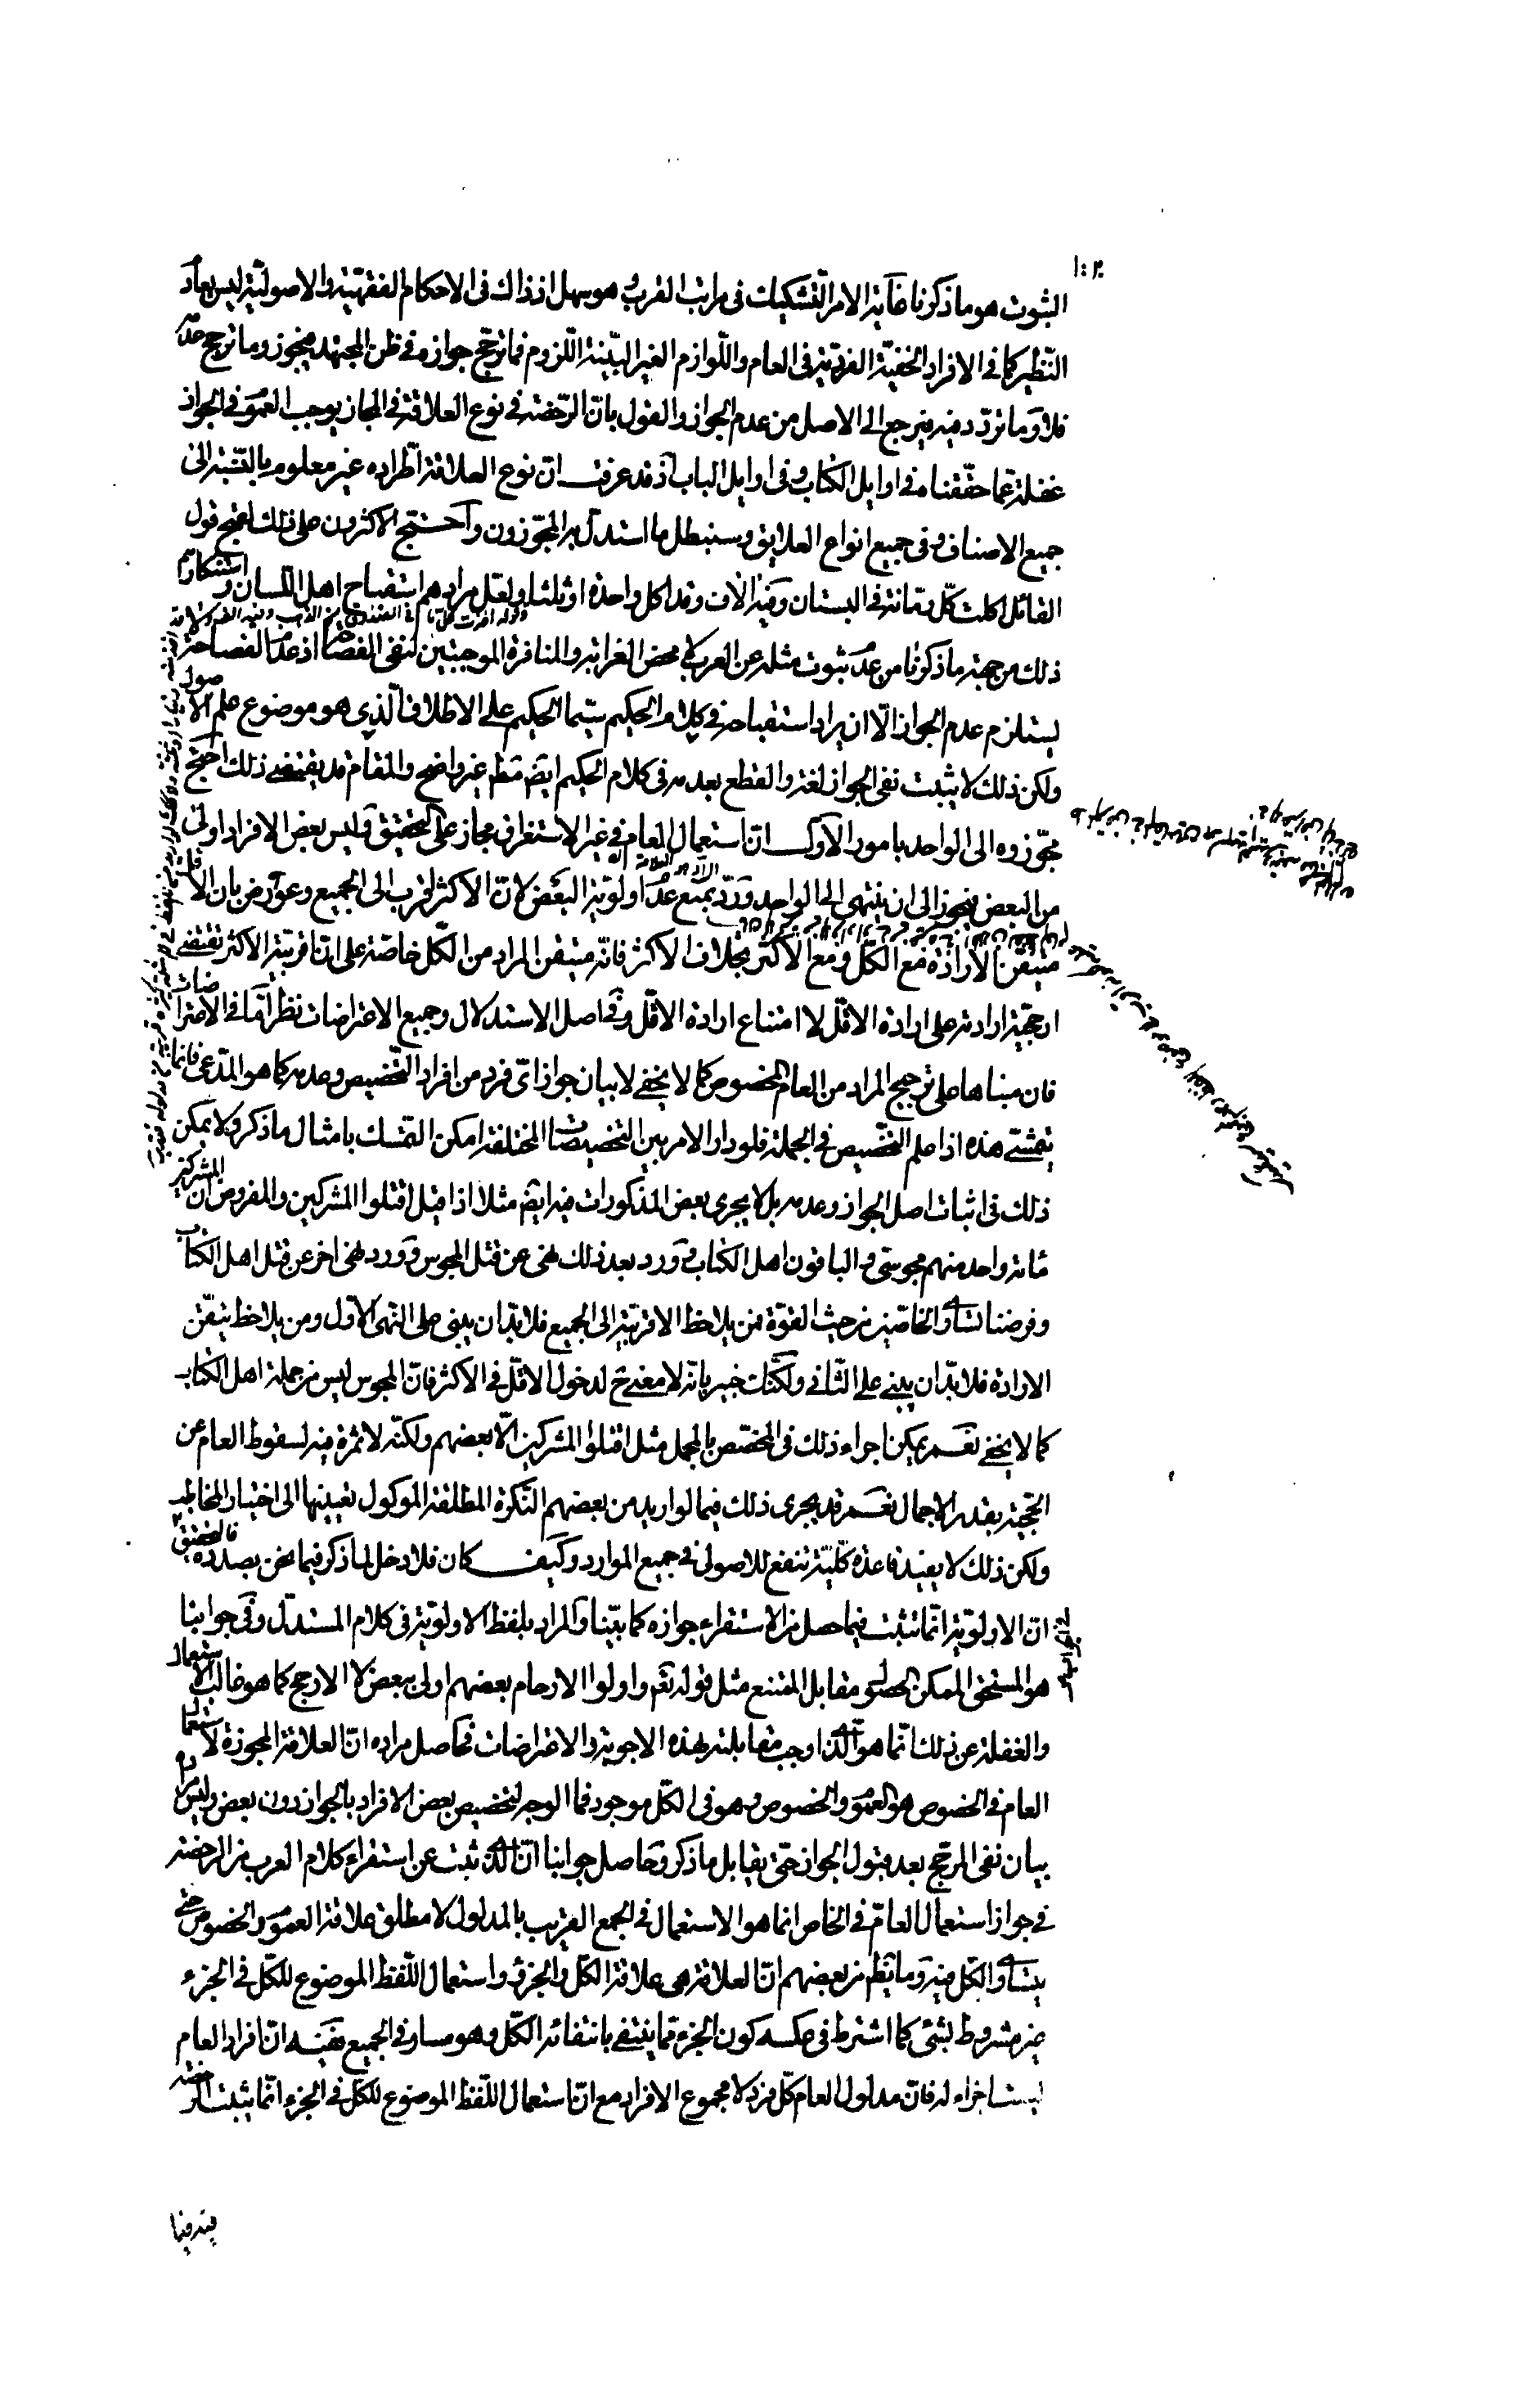 الثبوت هو ما ذكرنا غاية الامر التشكيك في مراتب القرب و هو سهل اذ ذاك في الاحكام الفقهية والاصولية ليس بعادم
النظير كما في الافراد الخفية الفردية في العام واللوازم الغير البينة اللزوم فما ترجح جوازه في ظن المجتهد فيجوز وما ترجح عدمه
فلا وما تردد فيه فيرجع الى الاصل من عدم الجواز والقول بان الرخصة في نوع العلاقة في المجاز يوجب العموم في الجواز
غفلة عما حققناه في اوايل الكتاب وفي اوايل الباب اذ قد عرفت ان نوع العلاقة اطراده غير معلوم بالنسبة الى
جميع الاصناف وفي جميع انواع العلايق وسنبطل ما استدل به المجوزون واحتج الاكثرون على ذلك بقبح قول
القائل اكلت كل رمانة في البستان وفيه الاف وقد اكل واحدة او ثلثا ولعل مرادهم استقباح اهل اللسان واستنكارهم
ذلك من جهة ما ذكرنا من عدم ثبوت مثله عن العرب لا محض الغرابة والمنافرة الموجبتين لنفي الفصاحة اذ عدم الفصاحة لا
يستلزم عدم الجواز الا ان يراد استقباحه في كلام الحكيم سيما الحكيم على الاطلاق الذي هو موضوع علم الاصول
ولكن ذلك لا يثبت نفي الجواز لغة والقطع بعدمه في كلام الحكيم ايضا مطلقا غير واضح والمقام قد يقتضي ذلك احتج
مجوزوه الى الواحد بامور الاول ان استعمال العام في غير الاستغراق مجاز على التحقيق وليس بعض الافراد اولى
من البعض فيجوز الى ان ينتهي الى الواحد ورد بمنع عدم اولوية البعض لان الاكثر اقرب الى الجميع وعورض بان الاقل
متيقن الارادة مع الكل ومع الاكثر بخلاف الاكثر فانه متيقن المراد من الكل خاصة على ان اقربية الاكثر تقتضي
ارجحية ارادته على ارادة الاقل لا امتناع ارادة الاقل وفي اصل الاستدلال وجميع الاعتراضات نظر اما في الاعتراضات
فان مبناها على ترجيح المراد من العام المخصوص كما لا يخفى لا بيان جواز اي فرد من افراد التخصيص وعدمه كما هو المدعى فانما
يتمشى هذه اذا علم التخصيص في الجملة فلو دار الامر بين التخصيصات المختلفة امكن التمسك بامثال ما ذكر ولا يمكن
ذلك في اثبات اصل الجواز وعدمه بل لا يجري بعض المذكورات فيه ايضا مثلا اذا قيل اقتلوا المشركين والمفروض ان المشركين
مائة واحد منهم مجوسي والباقون اهل الكتاب وورد بعد ذلك نهي عن قتل المجوس وورد نهي اخر عن قتل اهل الكتاب
وفرضنا تساوي الخاصين من حيث القوة فمن يلاحظ الاقربية الى الجميع فلا بد ان يبني على النهي الاول ومن يلاحظ تيقن
الارادة فلا بد ان يبني على الثاني ولكنك خبير بانه لا معنى ح لدخول الاقل في الاكثر فان المجوس ليس من جملة اهل الكتاب
كما لا يخفى نعم يمكن اجراء ذلك في المخصص بالمجمل مثل اقتلوا المشركين الا بعضهم ولكنه لا ثمرة فيه لسقوط العام عن
الحجية بقدر الاجمال نعم قد يجري ذلك فيما لو اريد من بعضهم النكرة المطلقة الموكول تعيينها الى اختيار المخاطب
ولكن ذلك لا يفيد قاعدة كلية تنفع للاصولي في جميع الموارد وكيف كان فلا دخل لما ذكر فيما نحن بصدده فالتحقيق
ان الاولوية انما تثبت فيما حصل من الاستقراء جوازه كما بينا والمراد بلفظ الاولوية في كلام المستدل وفي جوابنا
هو المستحق الممكن الحصول مقابل الممتنع مثل قوله تعم واولوا الارحام بعضهم اولى ببعض لا الارجح كما هو غالب الاستعمال
والغفلة عن ذلك انما هو الذي اوجب مقابلته بهذه الاجوبة والاعتراضات فحاصل مراده ان العلاقة المجوزة لاستعمال
العام في الخصوص هو العموم والخصوص وهو في الكل موجود فما الوجه لتخصيص بعض الافراد بالجواز دون بعض وليس مراده
بيان نفي المرجح بعد قبول الجواز حتى يقابل ما ذكر وحاصل جوابنا ان الذي ثبت عن استقراء كلام العرب من الرخصة
في جواز استعمال العام في الخاص انما هو الاستعمال في الجمع القريب بالمدلول لا مطلق علاقة العموم والخصوص حتى
يتساوى الكل فيه وما يظهر من بعضهم ان العلاقة هي علاقة الكل والجزء واستعمال اللفظ الموضوع للكل في الجزء
غير مشروط بشئ كما اشترط في عكسه كون الجزء مما ينتفي بانتفائه الكل وهو مساو في الجميع ففيه ان افراد العام
ليست اجزاء له فان مدلول العام كل فرد لا مجموع الافراد مع ان استعمال اللفظ الموضوع للكل في الجزء انما يثبت الرخصة
فيه فيما